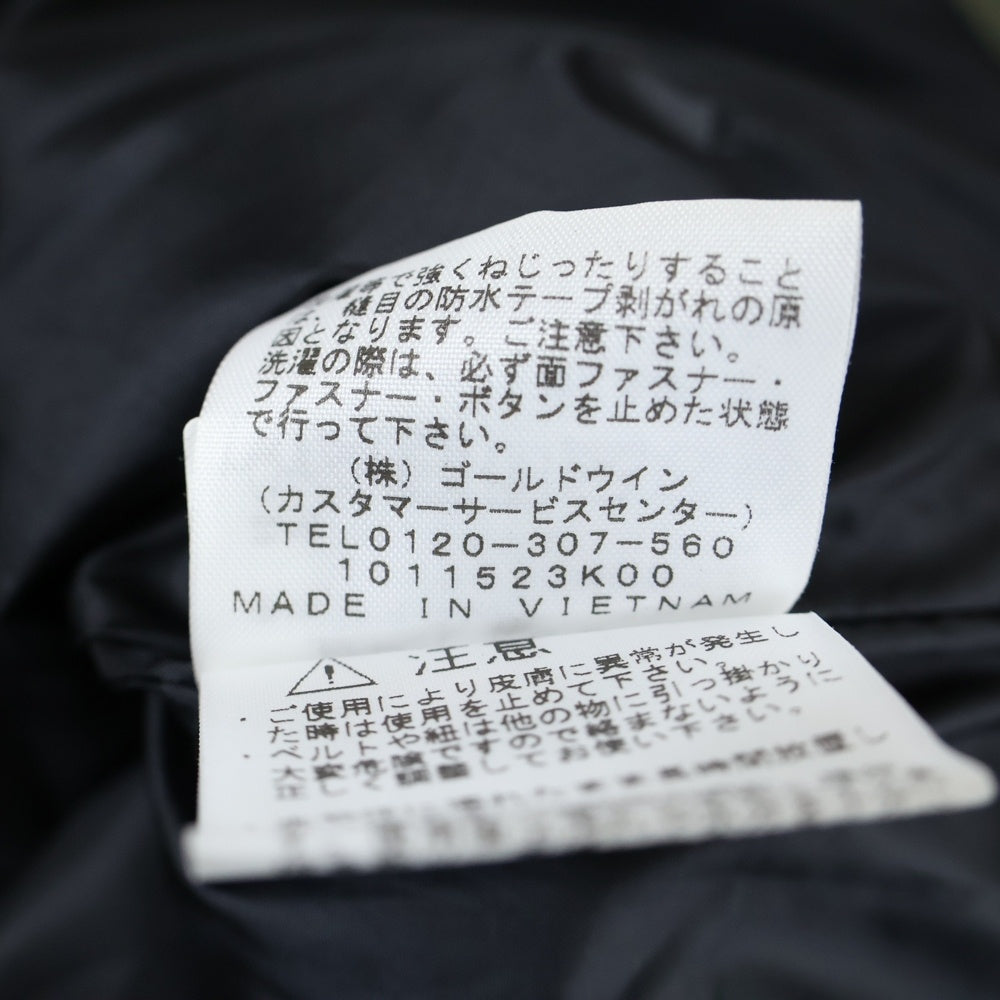 で強くねじったりすること
縫目の防水テープ剥がれの原
因となります。ご注意下さい。
洗濯の際は、必ず面ファスナー・
ファスナー・ボタンを止めた状態
で行って下さい。
(株) ゴールドウイン
(カスタマーサービスセンター)
TEL0120-307-560
1011523K00
MADE IN VIETNAM
注意
・ご使用により皮膚に異常が発生し
た時は使用を止めて下さい。
・ベルトや紐は他の物に引っ掛かり
大変危険ですので絡まないように
調整してお使い下さい。